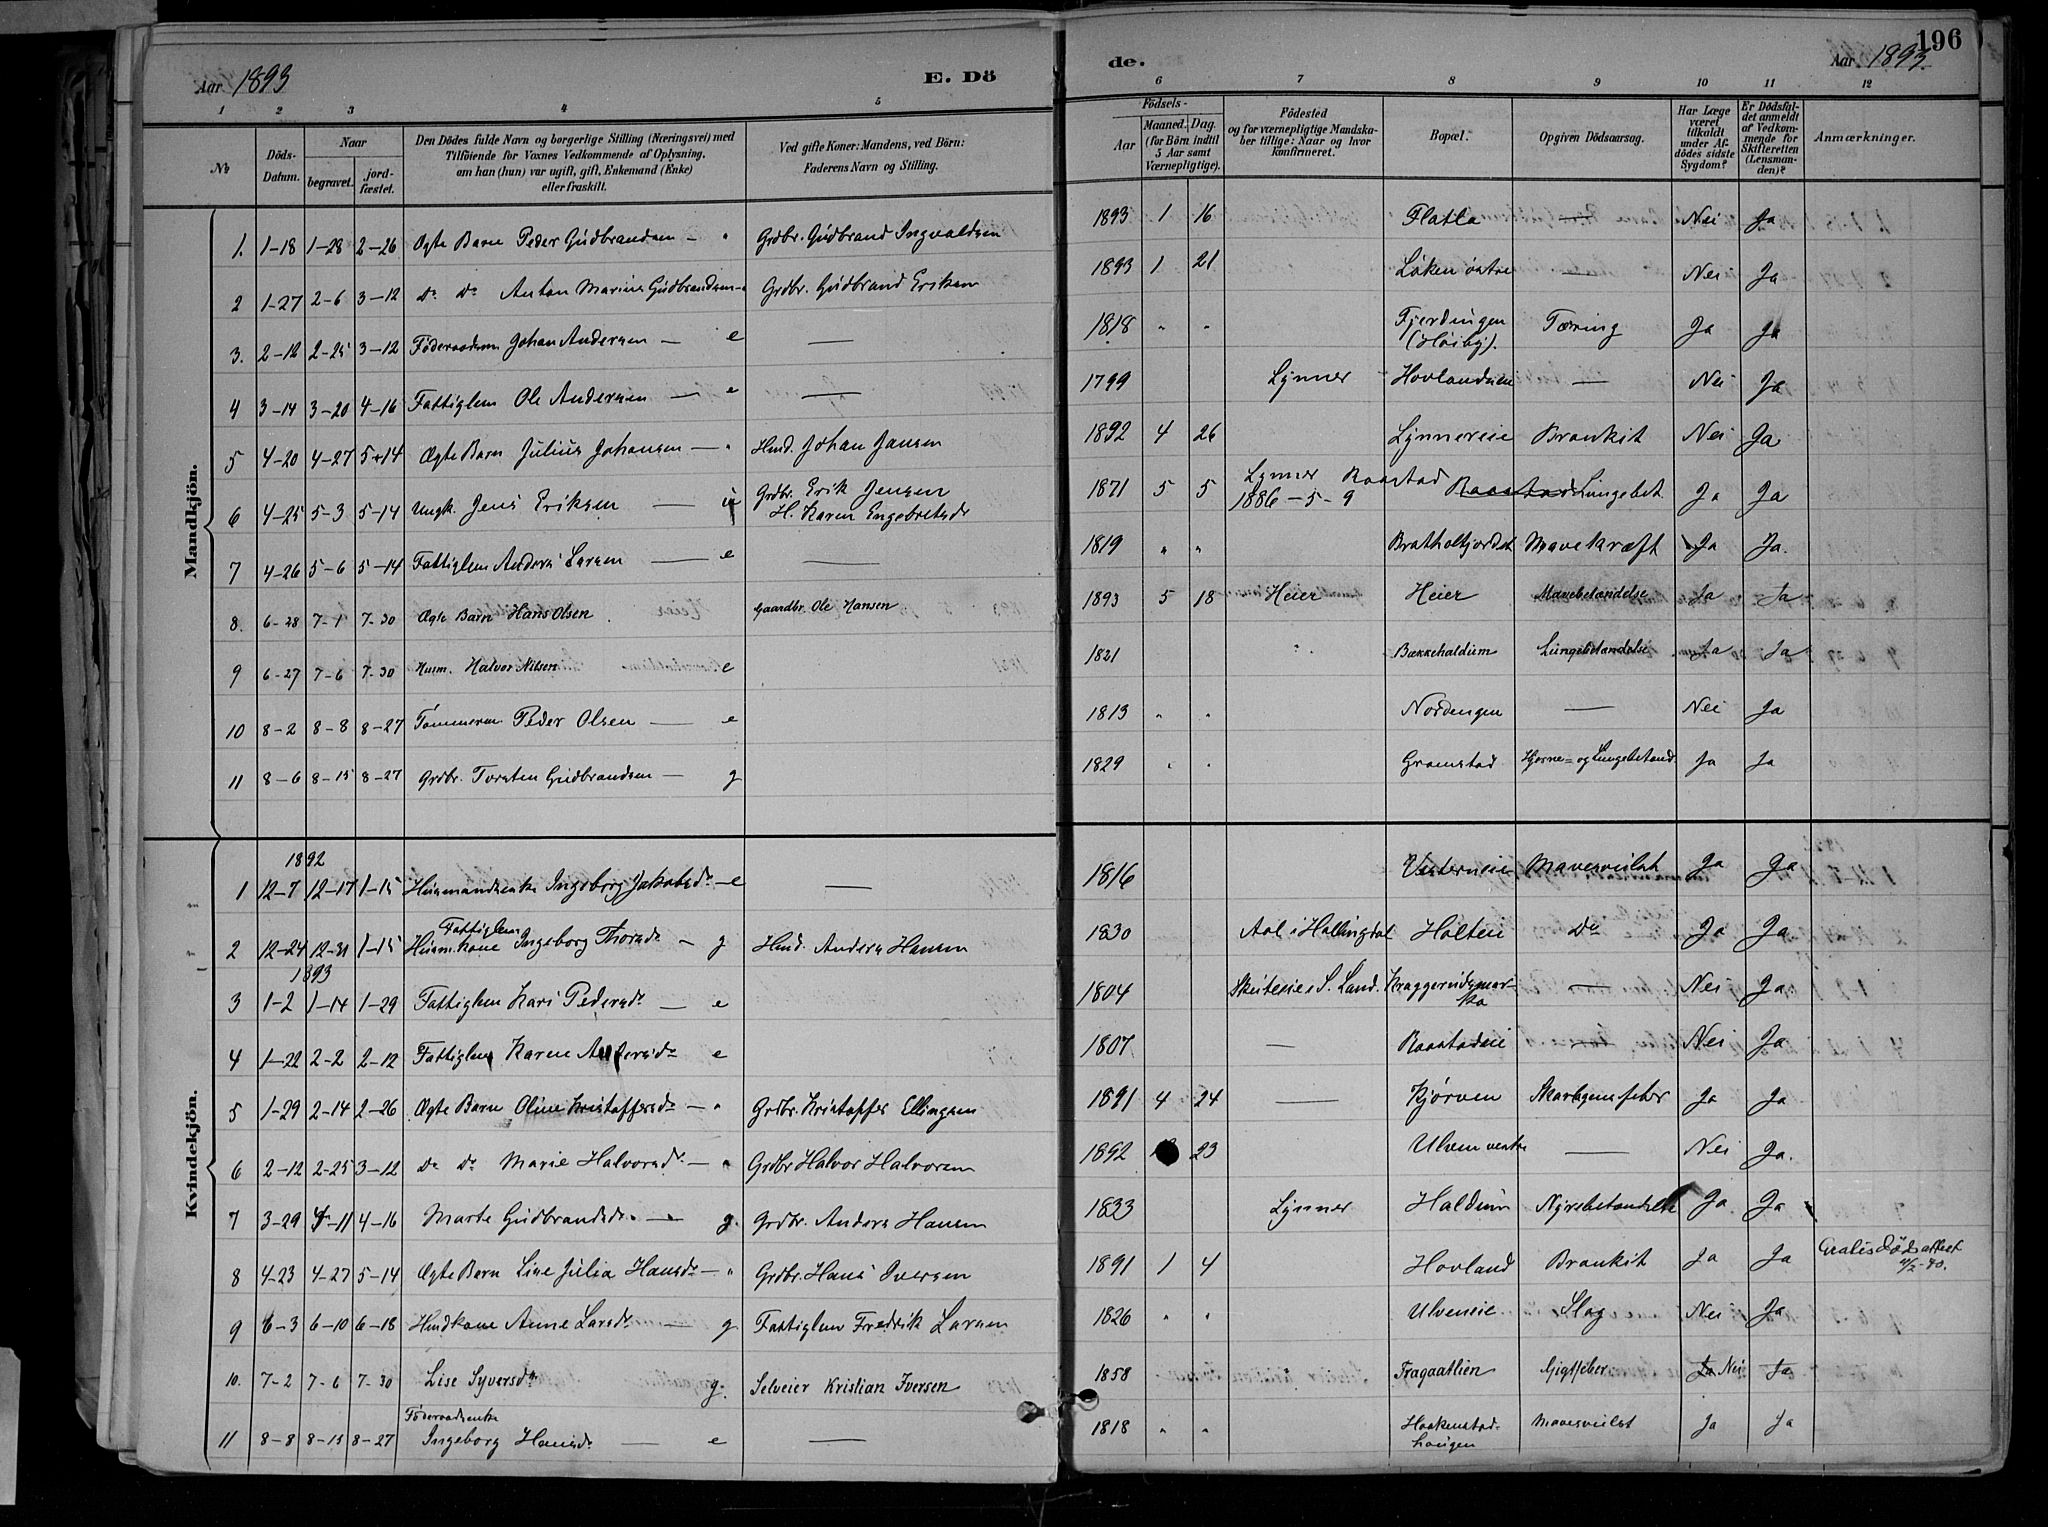 196
Aar 1893 E. Dö
de. Aar 1893
1 2 3 4 5 6 7 8 9 10 11 12
№ Döds-Datum. Naar begravet. jord-fæstet. Den Dödes fulde Navn og borgerlige Stilling (Næringsvei) med Tilföiende for Voxnes Vedkommende af Oplysning, om han (hun) var ugift, gift, Enkemand (Enke) eller fraskilt. Ved gifte Koner: Mandens, ved Börn: Faderens Navn og Stilling.
Födsels- Aar Maaned. Dag. (for Börn indtil 5 Aar samt Værnepligtige). Födested og for værnepligtige Mandskaber tillige: Naar og hvor konfirmeret. Bopæl. Opgiven Dödsaarsag. Har Læge været tilkaldt under Afdödes sidste Sygdom? Er Dödsfaldet anmeldt af Vedkommende for Skifteretten (Lensmanden)? Anmærkninger.
Mandkjön.
1. 1-18 1-28 2-26 Ægte Barn Peder Gudbrandsen - " Grdbr. Gudbrand Ingvaldsen 1893 1 16 Flatla — Nei Ja
2 1-27 2-6 3-12 Do Do Anton Marius Gudbrandsen - " Grdbr. Gudbrand Eriksen 1893 1 21 Løken østre — Nei Ja
3. 2-18 2-25 3-12 Føderaadsm Johan Andersen — e — 1818 " " Fjerdingen (Høiby). Tæring Ja Ja
4 3-14 3-20 4-16 Fattiglem Ole Andersen — e — 1799 Lynner Hovlandseie — Nei Ja
5 4-20 4-27 5-14 Ægte Barn Julius Johansen — " Hmd. Johan Jansen 1892 4 26 Lynnereie Bronkit Nei Ja
6 4-25 5-3 5-14 Ungk. Jens Eriksen — u Grdbr. Erik Jensen H. Karen Engebretsdr 1871 5 5 Lynner 1886-5-9 Raastad Raastad Lungebet Ja Ja
7 4-26 5-6 5-14 Fattiglem Anders Larsen — e — 1819 " " Bratholtjordet Mavekræft Ja Ja.
8. 6-28 7-1 7-30 Ægte Barn Hans Olsen Gaardbr. Ole Hansen 1893 5 18 Heier Heier Mavebetændelse Ja Ja
9 6-27 7-6 7-30 Husm. Halvor Nilsen e 1821 " Bækkehaldum Lungebetændelse Ja Ja
10 8-2 8-8 8-27 Tømmerm. Peder Olsen — e 1813 " " Nordengen — Nei Ja
11 8-6 8-15 8-27 Grdbr. Torsten Gudbrandsen — g 1829 " " Gramstad Hjerne= og Lungebetænd. Ja Ja
Kvindekjön.
1892
1 12-7 12-17 1-15 Husmandsenke Ingeborg Jakobsdr - e — 1816 Vesterneie Mavesvulst Ja Ja
2 12-24 12-31 1-15 Fattiglem Husm.kone Ingeborg Thorsdr - g Hmd. Anders Hansen 1830 Aal i Hallingdal Holteie Do Ja Ja
1893
3 1-2 1-14 1-29 Fattiglem Kari Pedersdr — e 1804 Skuteeie i S. Land. Kraggerudsmarka — Nei Ja
4 1-22 2-2 2-12 Fattiglem Karen Andersdr e 1807 — Raastadeie — Nei Ja
5 1-29 2-14 2-26 Ægte Barn Oline Kristoffersdr - " Grdbr. Kristoffer Ellingsen 1891 4 24 — Kjørven Skarlagensfeber Ja Ja
6 2-12 2-25 3-12 Do Do Marie Halvorsdr — " Grdbr Halvor Halvorsen 1892 23 Ulven vestre — Nei Ja.
7 3-29 4-11 4-16 Marte Gudbrandsdr. — g. Grdbr. Anders Hansen 1833 Lynner Haldum Nyrebetændelse Ja Ja
8 4-23 4-27 5-14 Ægte Barn Lise Julia Hansdr - " Grdbr. Hans Iversen 1891 1 4 Hovland Bronkit Ja Ja Gratis dødsattest
9 6-3 6-10 6-18 Hmdkone Anne Larsdr — g Fattiglem Fredrik Larsen 1826 " " Ulveneie Slag Nei Ja
10. 7-2 7-6 7-30 Lise Syversdr g. Selveier Kristian Iversen 1858 Fragaatlien Gigtfeber Ja Nei Ja
11 8-8 8-15 8-27 Føderaadsenke Ingeborg Hansdr — e — 1818 " " Haakenstadhaugen Mavesvulst Ja Ja